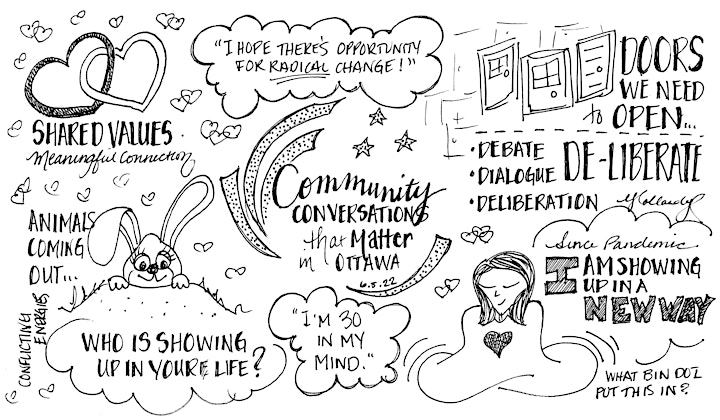 "I HOPE THERE'S OPPORTUNITY
FOR RADICAL CHANGE!"
SHARED VALUES
Meaningful Connection
DOORS
WE NEED
to OPEN...
Community
CONVERSATIONS
that Matter
in OTTAWA
6.5.22
• DEBATE
• DIALOGUE
• DELIBERATION
DE-LIBERATE
ANIMALS
COMING
OUT...
CONFLICTING
ENERGIES
WHO IS SHOWING
UP IN YOURE LIFE?
"I'M 30
IN MY
MIND."
Since Pandemic
I AM SHOWING
UP IN A
NEW WAY
WHAT BIN DO I
PUT THIS IN?